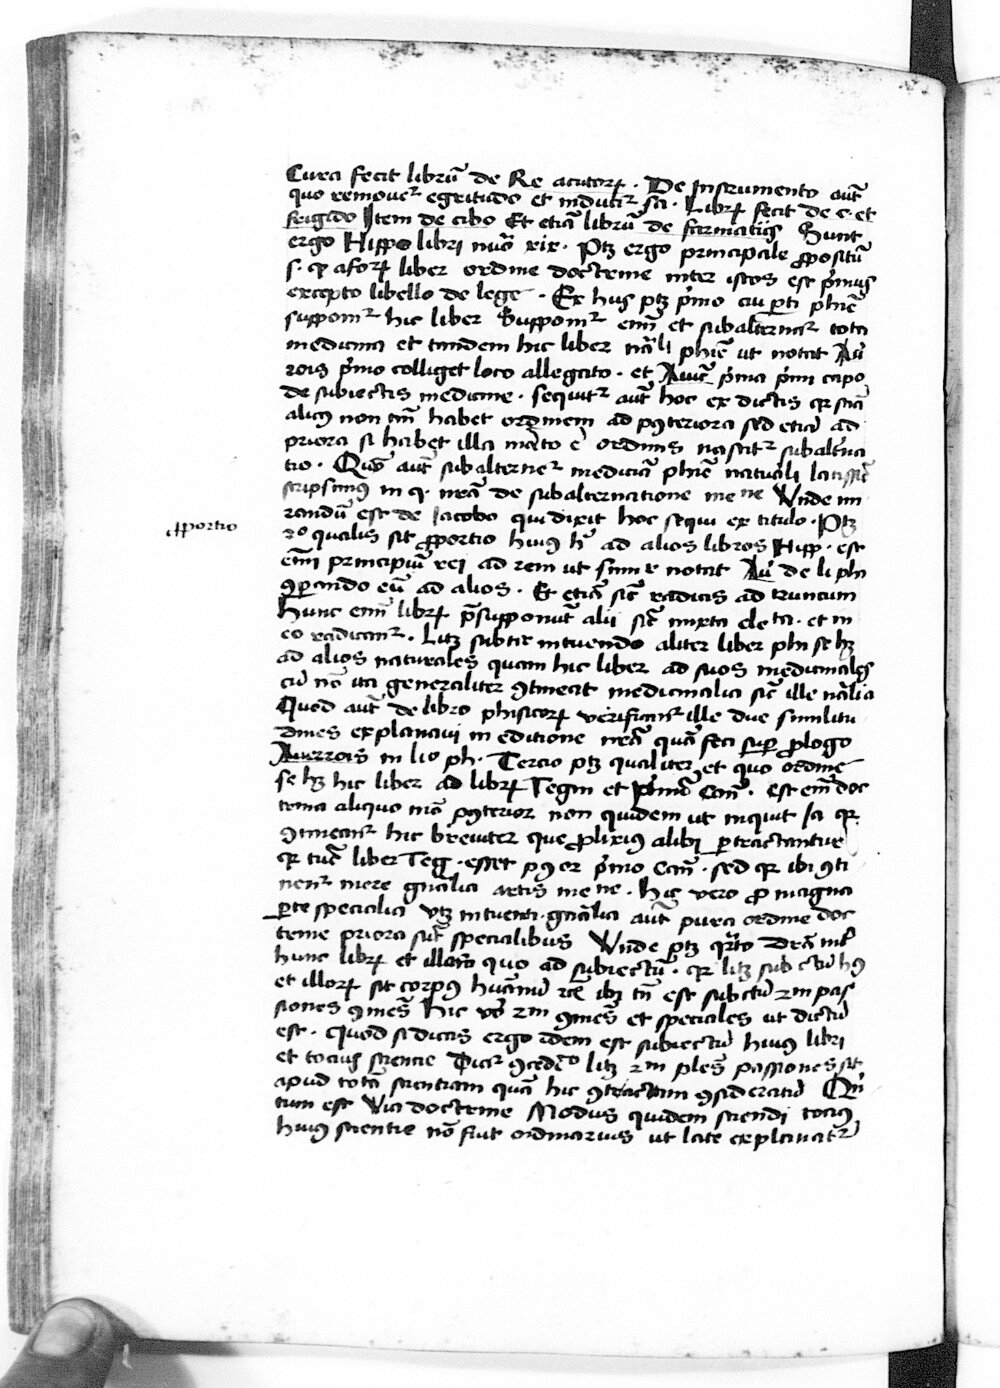 Cura fecit librū de Re acutorꝝ · De Instrumento aūt
quo remouetᷣ egritudo et inducitᷣ sa · Librꝝ fecit de c · et
frigido Item de cibo Et etiā librū de farmatijs Sunt
ergo Hippo libri nūō xix · Ptꝫ ergo principale ꝓpositū
s · ꝙ aforꝝ liber ordine doctrine inter istos est pͥmus
excepto libello de lege · Ex hijs ptꝫ pͥmo cui ꝑti phīe
supponitᷣ hic liber Supponitᷣ enī et subalternatᷣ tota
medicina et tandem hic liber nāli phīe ut notat Au
rois pͥmo colliget loco allegato · et Auic̄ pͥma pͥmi capo
de subiectis medicine · sequitᷣ aūt hoc ex dictis qꝛ scīa
aliqͣ non tm̄ habet ordinem ad posteriora sed etiā ad
priora si habet illa ordinis nascitᷣ subalterna
tio · Quō aūt subalternetᷣ medicīa phīe naturali latissīe
scripsimꝰ in q · nrā de subalternatione me ne Vnde mi
randū est de Iacobo qui dixit hoc sequi ex titulo · Ptꝫ
2º qualis sit ꝓportio huiꝰ lͥ ad alios libros Hipp · est
enī principiū rei ad rem ut sume notat Au de li phi
ꝯꝑando eū ad alios · Et etiā sic̄ radicis ad truncum
Hunc enī librꝝ p̄supponūt alii sic̄ iuxta dcta · et in
eo radicantᷣ · Litꝫ subtīr intuendo aliter liber phi se hꝫ
ad alios naturales quam hic liber ad suos medicinales
cū nō ita generaliter ꝯtineat medicinalia sic̄ ille nālia
Quod aūt de libro phisicorꝝ verificantᷣ ille due similitu
dines explanaui in editione nrā quā feci suꝑ ꝓlogo
Auerrois in lio ph · Tercio ptꝫ qualiter et quo ordine
se hꝫ hic liber ad librꝝ Tegni et pͥmū Can̄ · est enī doc
trina aliquo mō posterior non quidem ut inquit Ia qꝛ
ꝯtineatᷣ hic breuiter que ꝓlixiꝰ alibi ꝑtractantur
qꝛ tūc liber Teg · esset posꝰ er pͥmo Can̄ · sed qꝛ ibi ꝯti
nentᷣ mere gn̄alia artis me ne · hic vero ꝓ magna
ꝑte specialia vtꝫ intuenti · gn̄alia aūt pura ordine doc
trine priora sūt specialibus Vnde ptꝫ qͣrto dr̄ā int̄
hunc librꝝ et illorū quo ad subiectū · qꝛ litꝫ subctū hꝰ
et illorꝝ sit corpꝰ hūanū ibꝫ tn̄ est subctū 2m pas
siones ꝯmēs hic vō 2m ꝯmēs et speciales ut dictū
est · Quod si dicas ergo idem est subiectū huiꝰ libri
et tociꝰ scientie Dicatᷣ ꝯcedēdo litꝫ 2m ples passiones sit
apud totā scientiam quā hic ꝯtractam ꝯsideratū Quī
tum est Via doctrine Modus quidem sciendi tociꝰ
huiꝰ scientie nō fiut ordinarius ut late explanatᷣ
ꝓportio